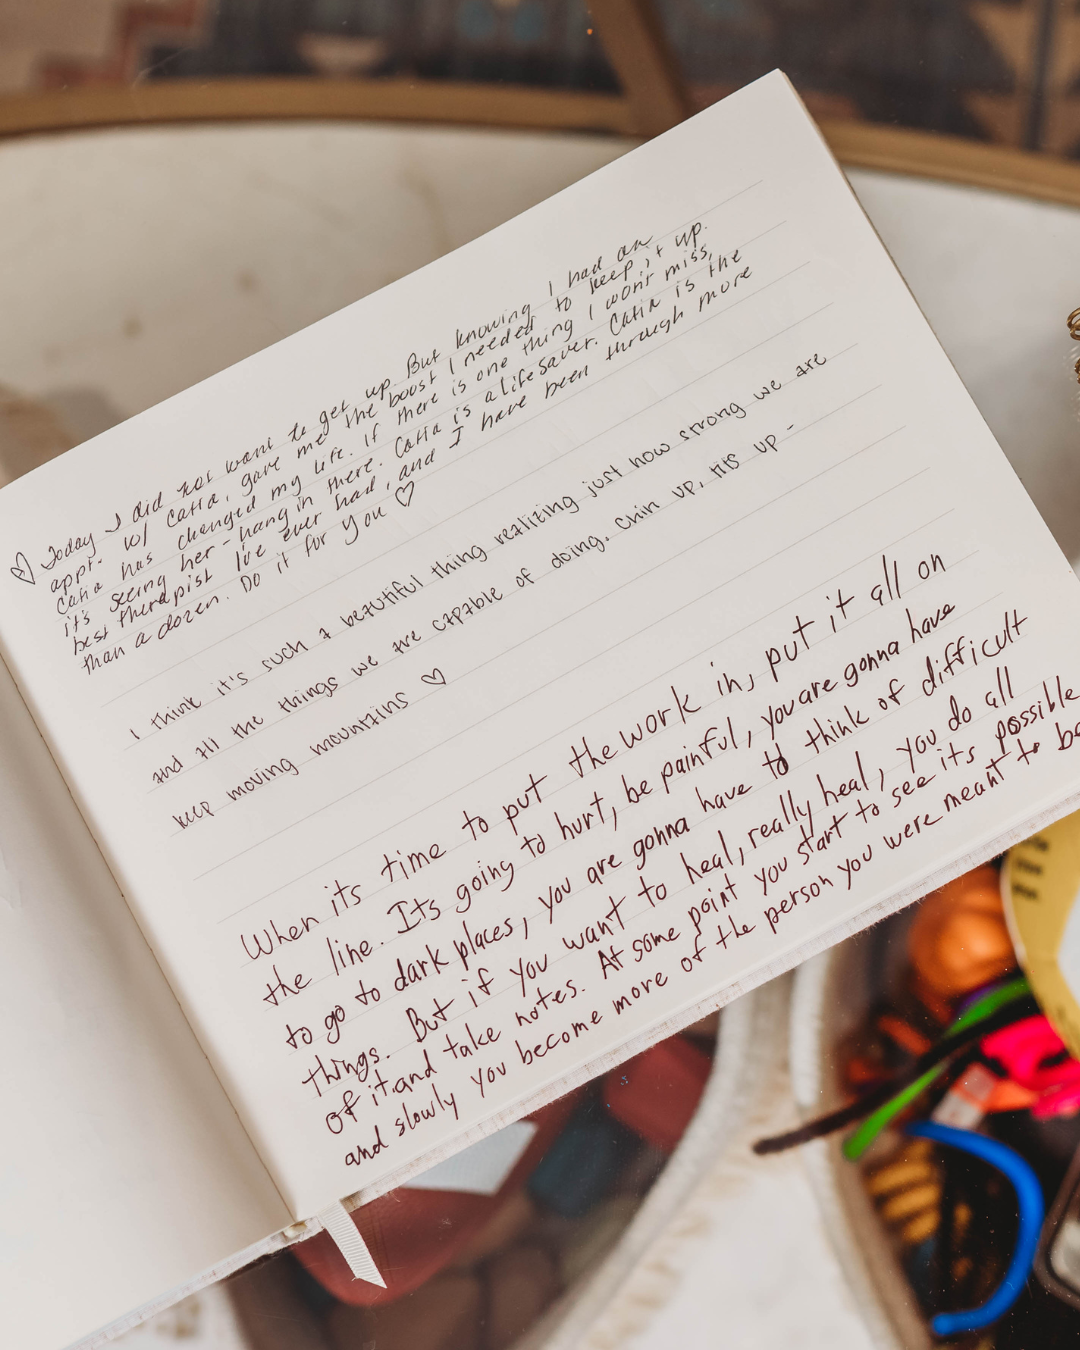 ♡ Today I did not want to get up. But knowing I had an
appt. w/ Catia, gave me the boost I needed to keep it up.
Catia has changed my life. If there is one thing I won't miss,
it's seeing her - hang in there. Catia is a lifesaver. Catia is the
best therapist I've ever had, and I have been through more
than a dozen. Do it for you ♡
I think it's such a beautiful thing realizing just how strong we are
and all the things we are capable of doing. Chin up, tits up -
keep moving mountains ♡
When its time to put the work in, put it all on
the line. Its going to hurt, be painful, you are gonna have
to go to dark places, you are gonna have to think of difficult
things. But if you want to heal, really heal, you do all
of it and take notes. At some point you start to see its possible
and slowly you become more of the person you were meant to be